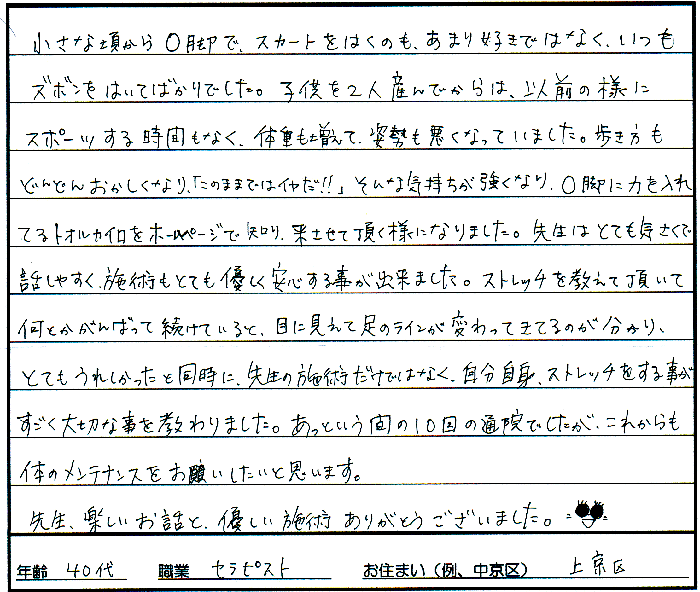 小さな頃からO脚で、スカートをはくのも、あまり好きではなく、いつも
ズボンをはいてばかりでした。子供を2人産んでからは、以前の様に
スポーツする時間もなく、体重も増えて、姿勢も悪くなっていました。歩き方も
どんどんおかしくなり、「このままではイヤだ!!」そんな気持ちが強くなり、O脚に力を入れ
てるトオルカイロをホームページで知り、来させて頂く様になりました。先生はとても気さくで
話しやすく、施術もとても優しく安心する事が出来ました。ストレッチを教えて頂いて
何とかがんばって続けていると、目に見えて足のラインが変わってきてるのが分かり、
とてもうれしかったと同時に、先生の施術だけではなく、自分自身、ストレッチをする事が
すごく大切な事を教わりました。あっという間の10回の通院でしたが、これからも
体のメンテナンスをお願いしたいと思います。
先生、楽しいお話と、優しい施術ありがとうございました。
年齢 40代 職業 セラピスト お住まい(例、中京区) 上京区